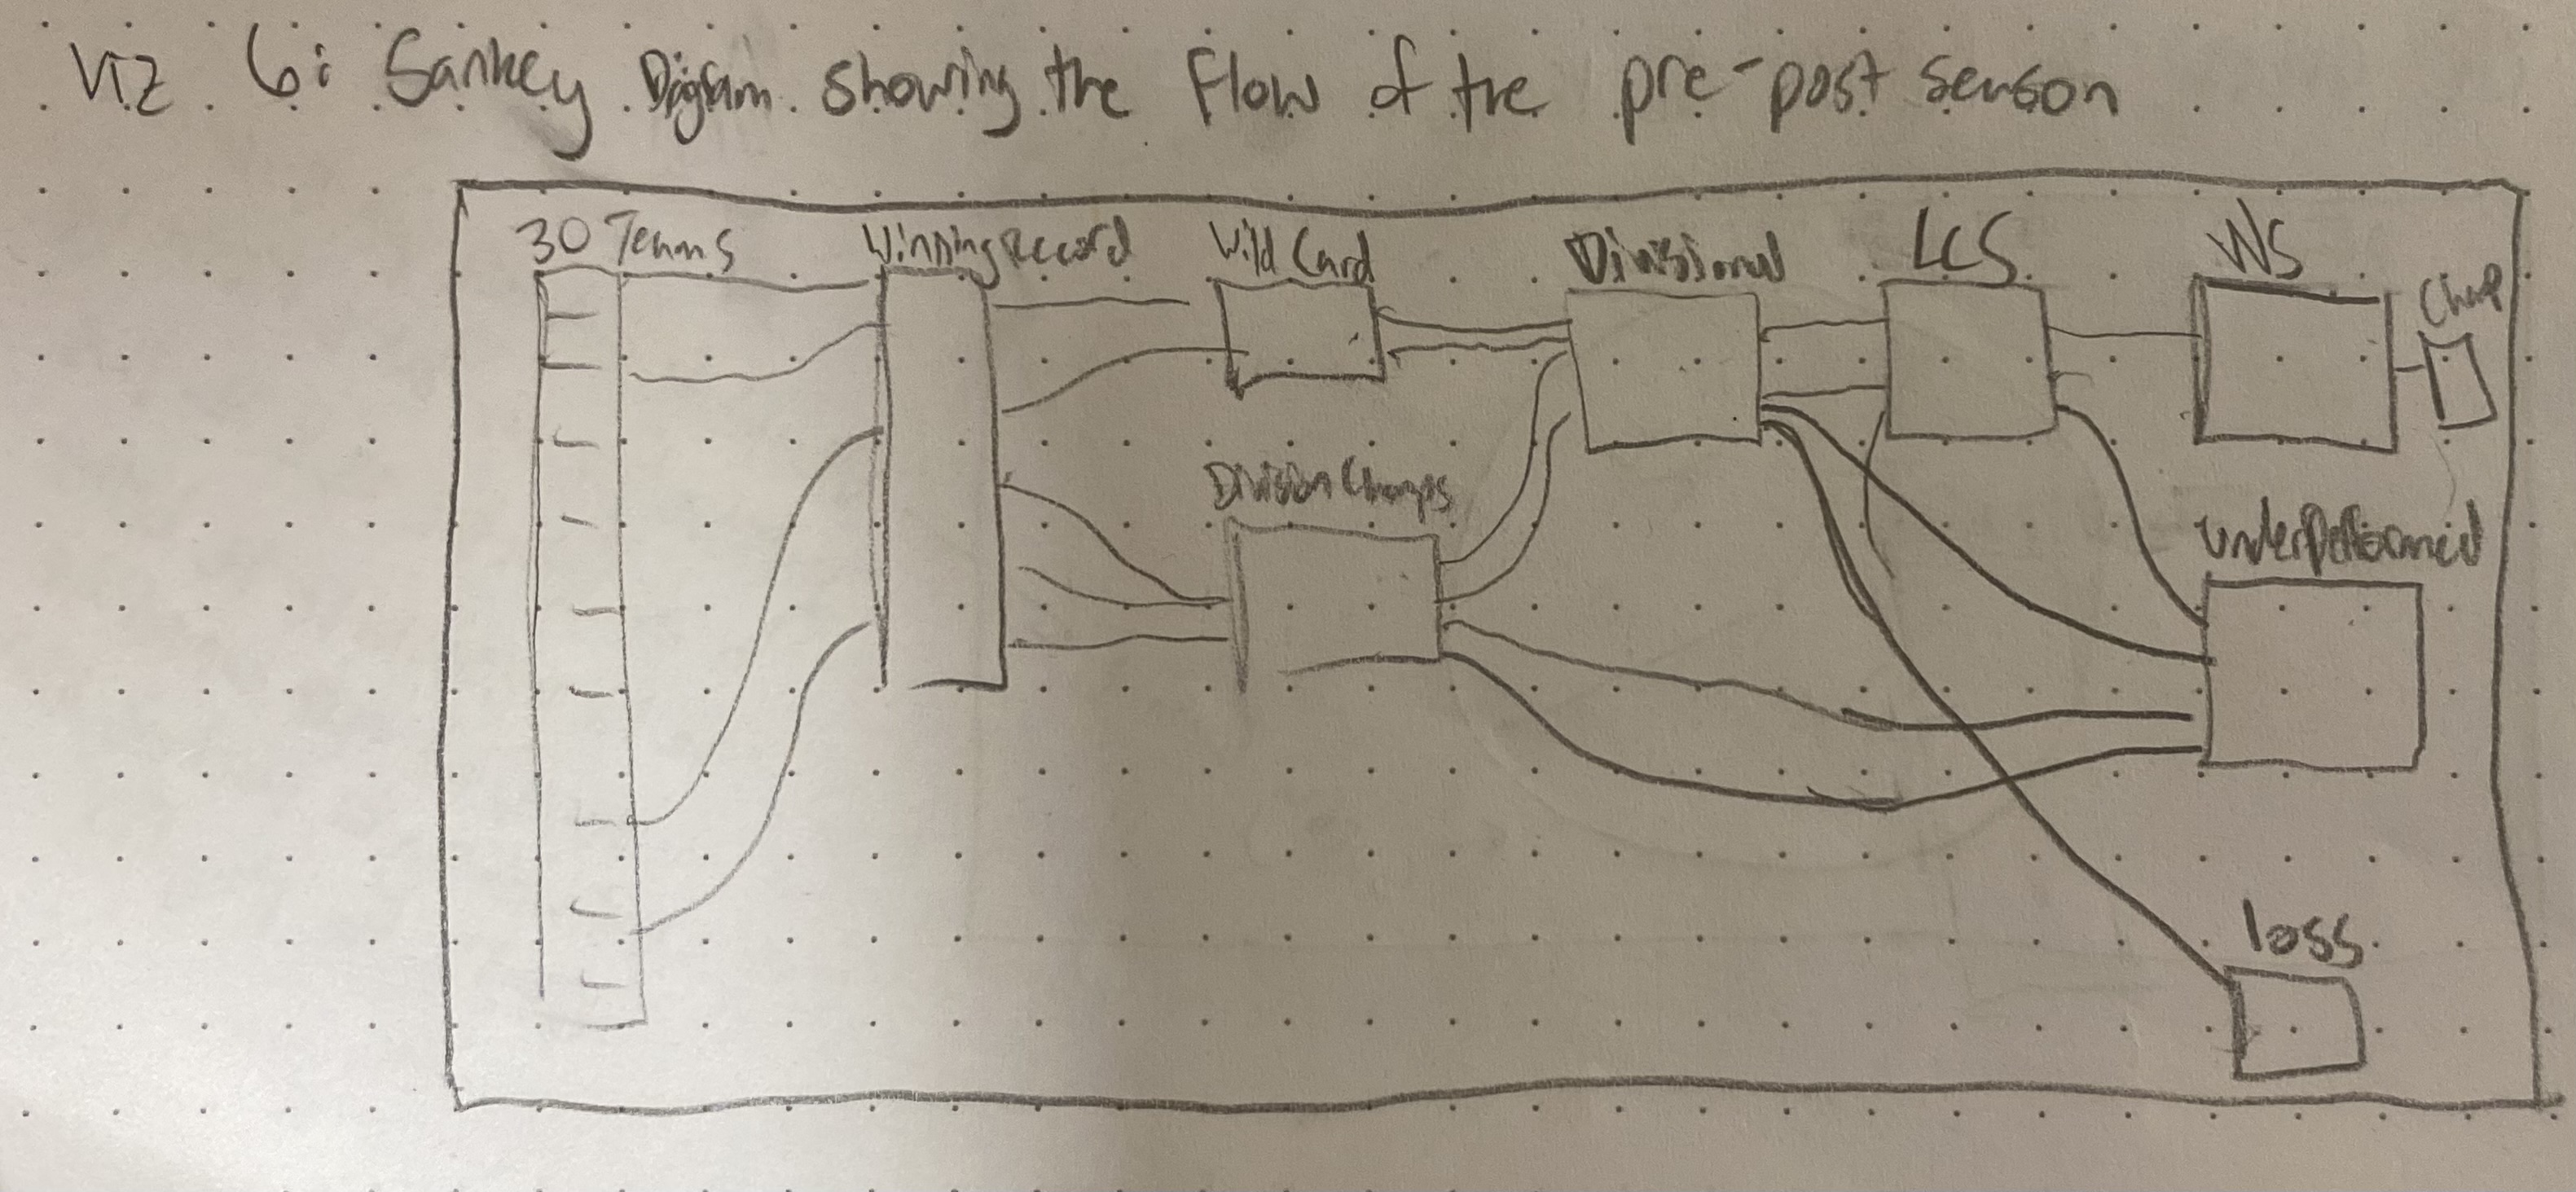 Viz 6: Sankey Digram showing the Flow of the pre-post season
30 Teams
Winning Record
Wild Card
Divisional
LCS
WS
Chmp
Division Champs
Underperformed
loss